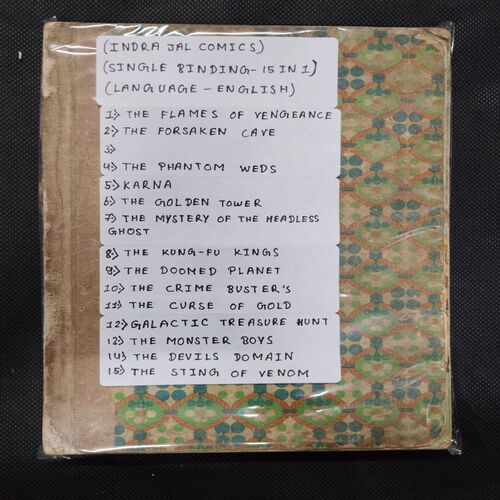 (INDRAJAL COMICS)
(SINGLE BINDING- 15 IN 1]
(LANGUAGE - ENGLISH)
1> THE FLAMES OF VENGEANCE
2> THE FORSAKEN CAVE
3>
4> THE PHANTOM WEDS
5> KARNA
6> THE GOLDEN TOWER
7> THE MYSTERY OF THE HEADLESS
GHOST
8> THE KUNG-FU KINGS
9> THE DOOMED PLANET
10> THE CRIME BUSTER'S
11> THE CURSE OF GOLD
12> GALACTIC TREASURE HUNT
13> THE MONSTER BOYS
14> THE DEVILS DOMAIN
15> THE STING OF VENOM